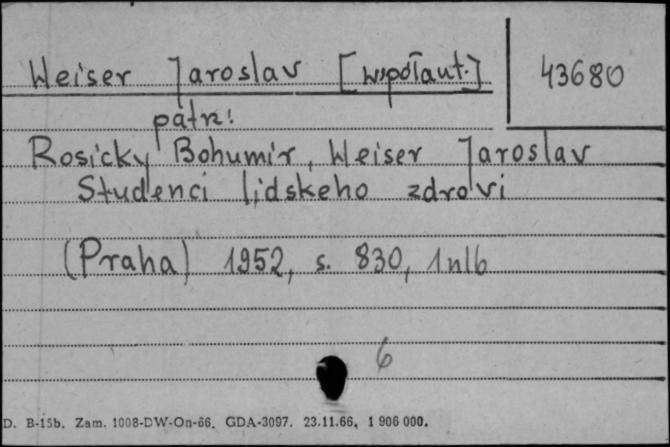 Weiser Jaroslav [współaut.] 43680
patrz:
Rosicky Bohumír, Weiser Jaroslav
Studenci lidskeho zdrovi
(Praha) 1952, s. 830, 1nlb
6
D. B-15b. Zam. 1008-DW-On-66. GDA-3097. 23.11.66. 1 906 000.